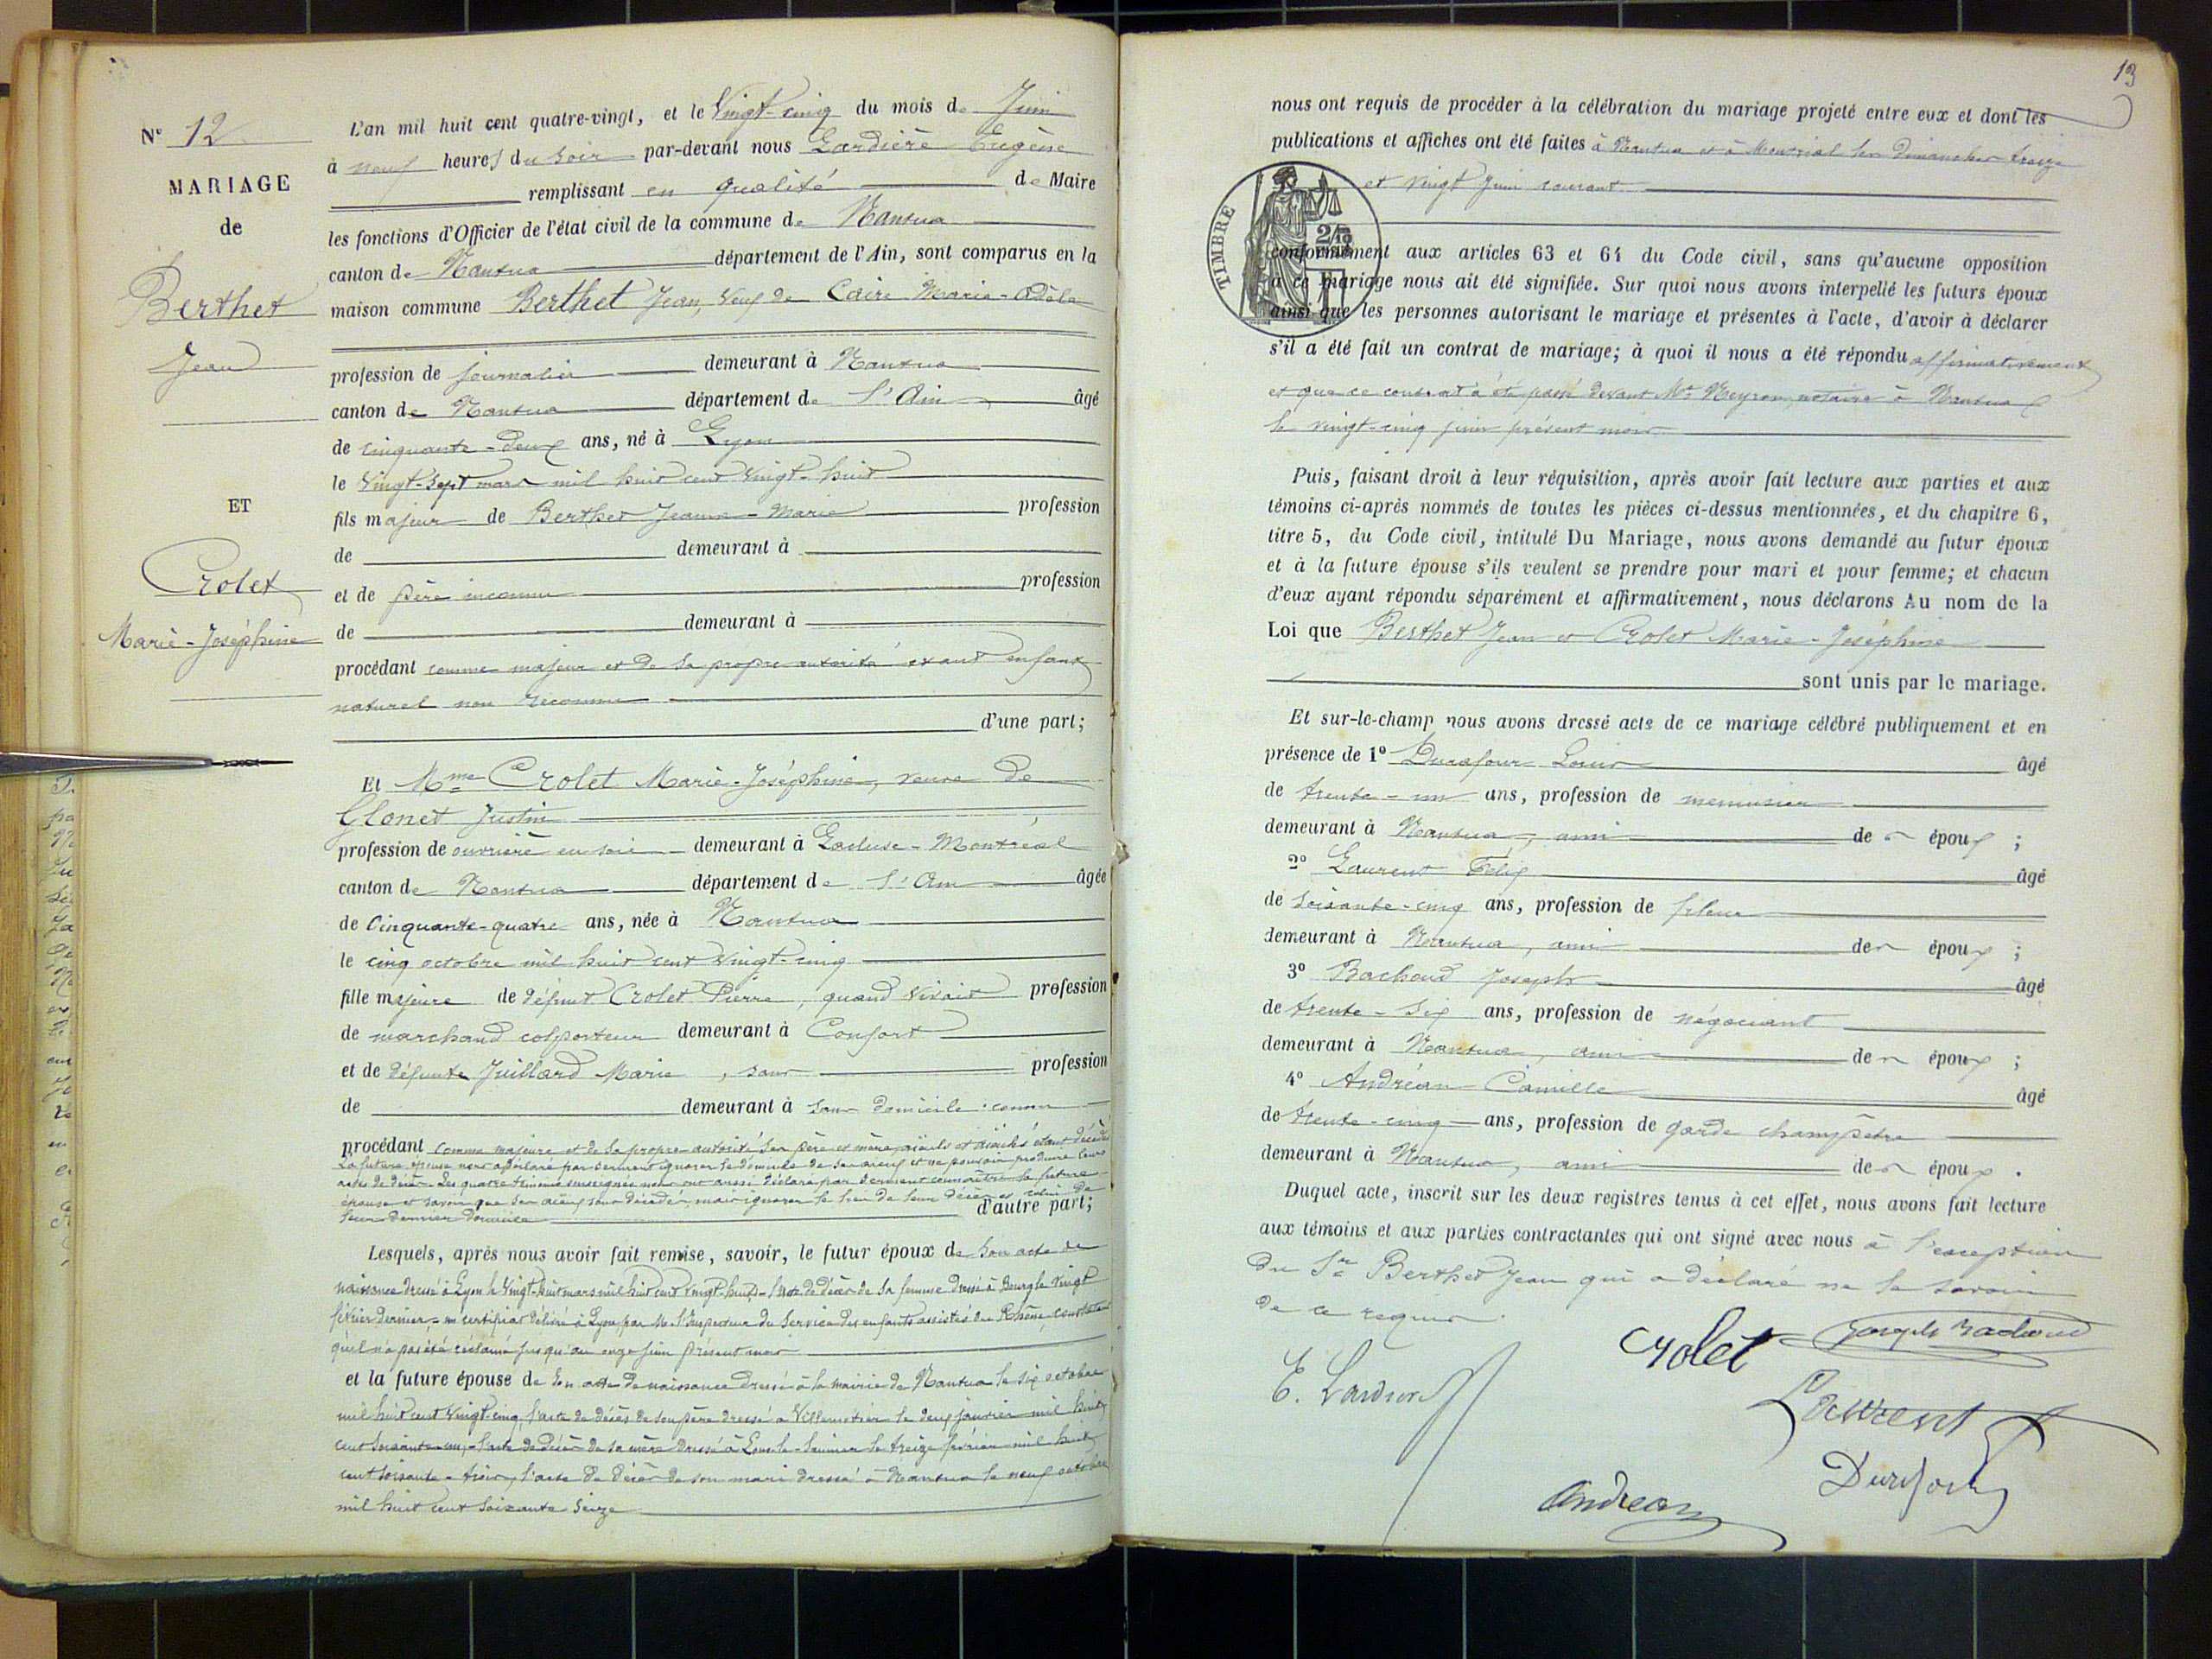 Nº 12
MARIAGE
de
Berthet
Jean
ET
Crolet
Marie-Joséphine
L'an mil huit cent quatre-vingt, et le Vingt-cinq du mois de Juin
à neuf heures du soir par-devant nous Lardière Eugène
remplissant en qualité de Maire
les fonctions d'Officier de l'état civil de la commune de Nantua
canton de Nantua département de l'Ain, sont comparus en la
maison commune Berthet Jean, Veuf de Caire Marie-Adèle
profession de journalier demeurant à Nantua
canton de Nantua département de l'Ain âgé
de cinquante-deux ans, né à Lyon
le Vingt-Sept mars mil huit cent Vingt-huit
fils majeur de Berthet Jeanne-Marie profession
de demeurant à
et de père inconnu profession
de demeurant à
procédant comme majeur et de sa propre autorité étant enfant
naturel non reconnu
d'une part;
Et Mme Crolet Marie-Joséphine, veuve de
Glonet Justin
profession de ouvrière en soie demeurant à Lacluse-Montréal
canton de Nantua département de l'Ain âgée
de Cinquante-quatre ans, née à Nantua
le cinq octobre mil huit cent Vingt-cinq
fille majeure de défunt Crolet Pierre, quand vivait profession
de marchand colporteur demeurant à Confort
et de défunte Juillard Marie, sans profession
de demeurant à sans domicile connu
procédant comme majeure et de sa propre autorité ses père et mère, aïeuls et aïeules étant décédés
La future épouse nous a déclaré par serment ignorer le domicile de ses aïeux et ne pouvoir produire leurs
actes de décès. Les quatre témoins nous ont aussi déclaré par serment connaître la future
épouse et savoir que ses aïeux sont décédés, mais ignorer le lieu de leur décès et celui de
leur dernier domicile d'autre part;
Lesquels, après nous avoir fait remise, savoir, le futur époux de son acte de
naissance dressé à Lyon le Vingt-huit mars mil huit cent Vingt-huit, l'acte de décès de sa femme dressé à Bourg le Vingt
février dernier, un certificat délivré à Lyon par M. l'Inspecteur du Service des enfants assistés du Rhône, constatant
qu'il n'a pas été réclamé jusqu'au onze juin présent mois
et la future épouse de son acte de naissance dressé à la mairie de Nantua le six octobre
mil huit cent Vingt-cinq, l'acte de décès de son père dressé à Villemotier le deux janvier mil huit
cent soixante-un, l'acte de décès de sa mère dressé à Lons-le-Saunier le treize février mil huit
cent soixante-trois, l'acte de décès de son mari dressé à Nantua le neuf octobre
mil huit cent soixante seize
13
nous ont requis de procéder à la célébration du mariage projeté entre eux et dont les
publications et affiches ont été faites à Nantua et à Montréal les Dimanches treize
et vingt Juin courant
TIMBRE
2/10
conformément aux articles 63 et 64 du Code civil, sans qu'aucune opposition
à ce mariage nous ait été signifiée. Sur quoi nous avons interpellé les futurs époux
ainsi que les personnes autorisant le mariage et présentes à l'acte, d'avoir à déclarer
s'il a été fait un contrat de mariage; à quoi il nous a été répondu affirmativement
et que ce contrat a été passé devant Me Neyron, notaire à Nantua
le vingt-cinq juin présent mois
Puis, faisant droit à leur réquisition, après avoir fait lecture aux parties et aux
témoins ci-après nommés de toutes les pièces ci-dessus mentionnées, et du chapitre 6,
titre 5, du Code civil, intitulé Du Mariage, nous avons demandé au futur époux
et à la future épouse s'ils veulent se prendre pour mari et pour femme; et chacun
d'eux ayant répondu séparément et affirmativement, nous déclarons Au nom de la
Loi que Berthet Jean et Crolet Marie-Joséphine
sont unis par le mariage.
Et sur-le-champ nous avons dressé acte de ce mariage célébré publiquement et en
présence de 1º Durafour Louis âgé
de trente-un ans, profession de menuisier
demeurant à Nantua, ami des époux ;
2º Laurent Félix âgé
de soixante-cinq ans, profession de fileur
demeurant à Nantua, ami des époux ;
3º Bachoud Joseph âgé
de trente-six ans, profession de négociant
demeurant à Nantua, ami des époux ;
4º Andréan Camille âgé
de trente-cinq ans, profession de garde champêtre
demeurant à Nantua, ami des époux .
Duquel acte, inscrit sur les deux registres tenus à cet effet, nous avons fait lecture
aux témoins et aux parties contractantes qui ont signé avec nous à l'exception
du Sr Berthet Jean qui a déclaré ne le savoir
de ce requis.
Crolet
Joseph Bachoud
E. Lardière
Laurent
Durafour
Andrean